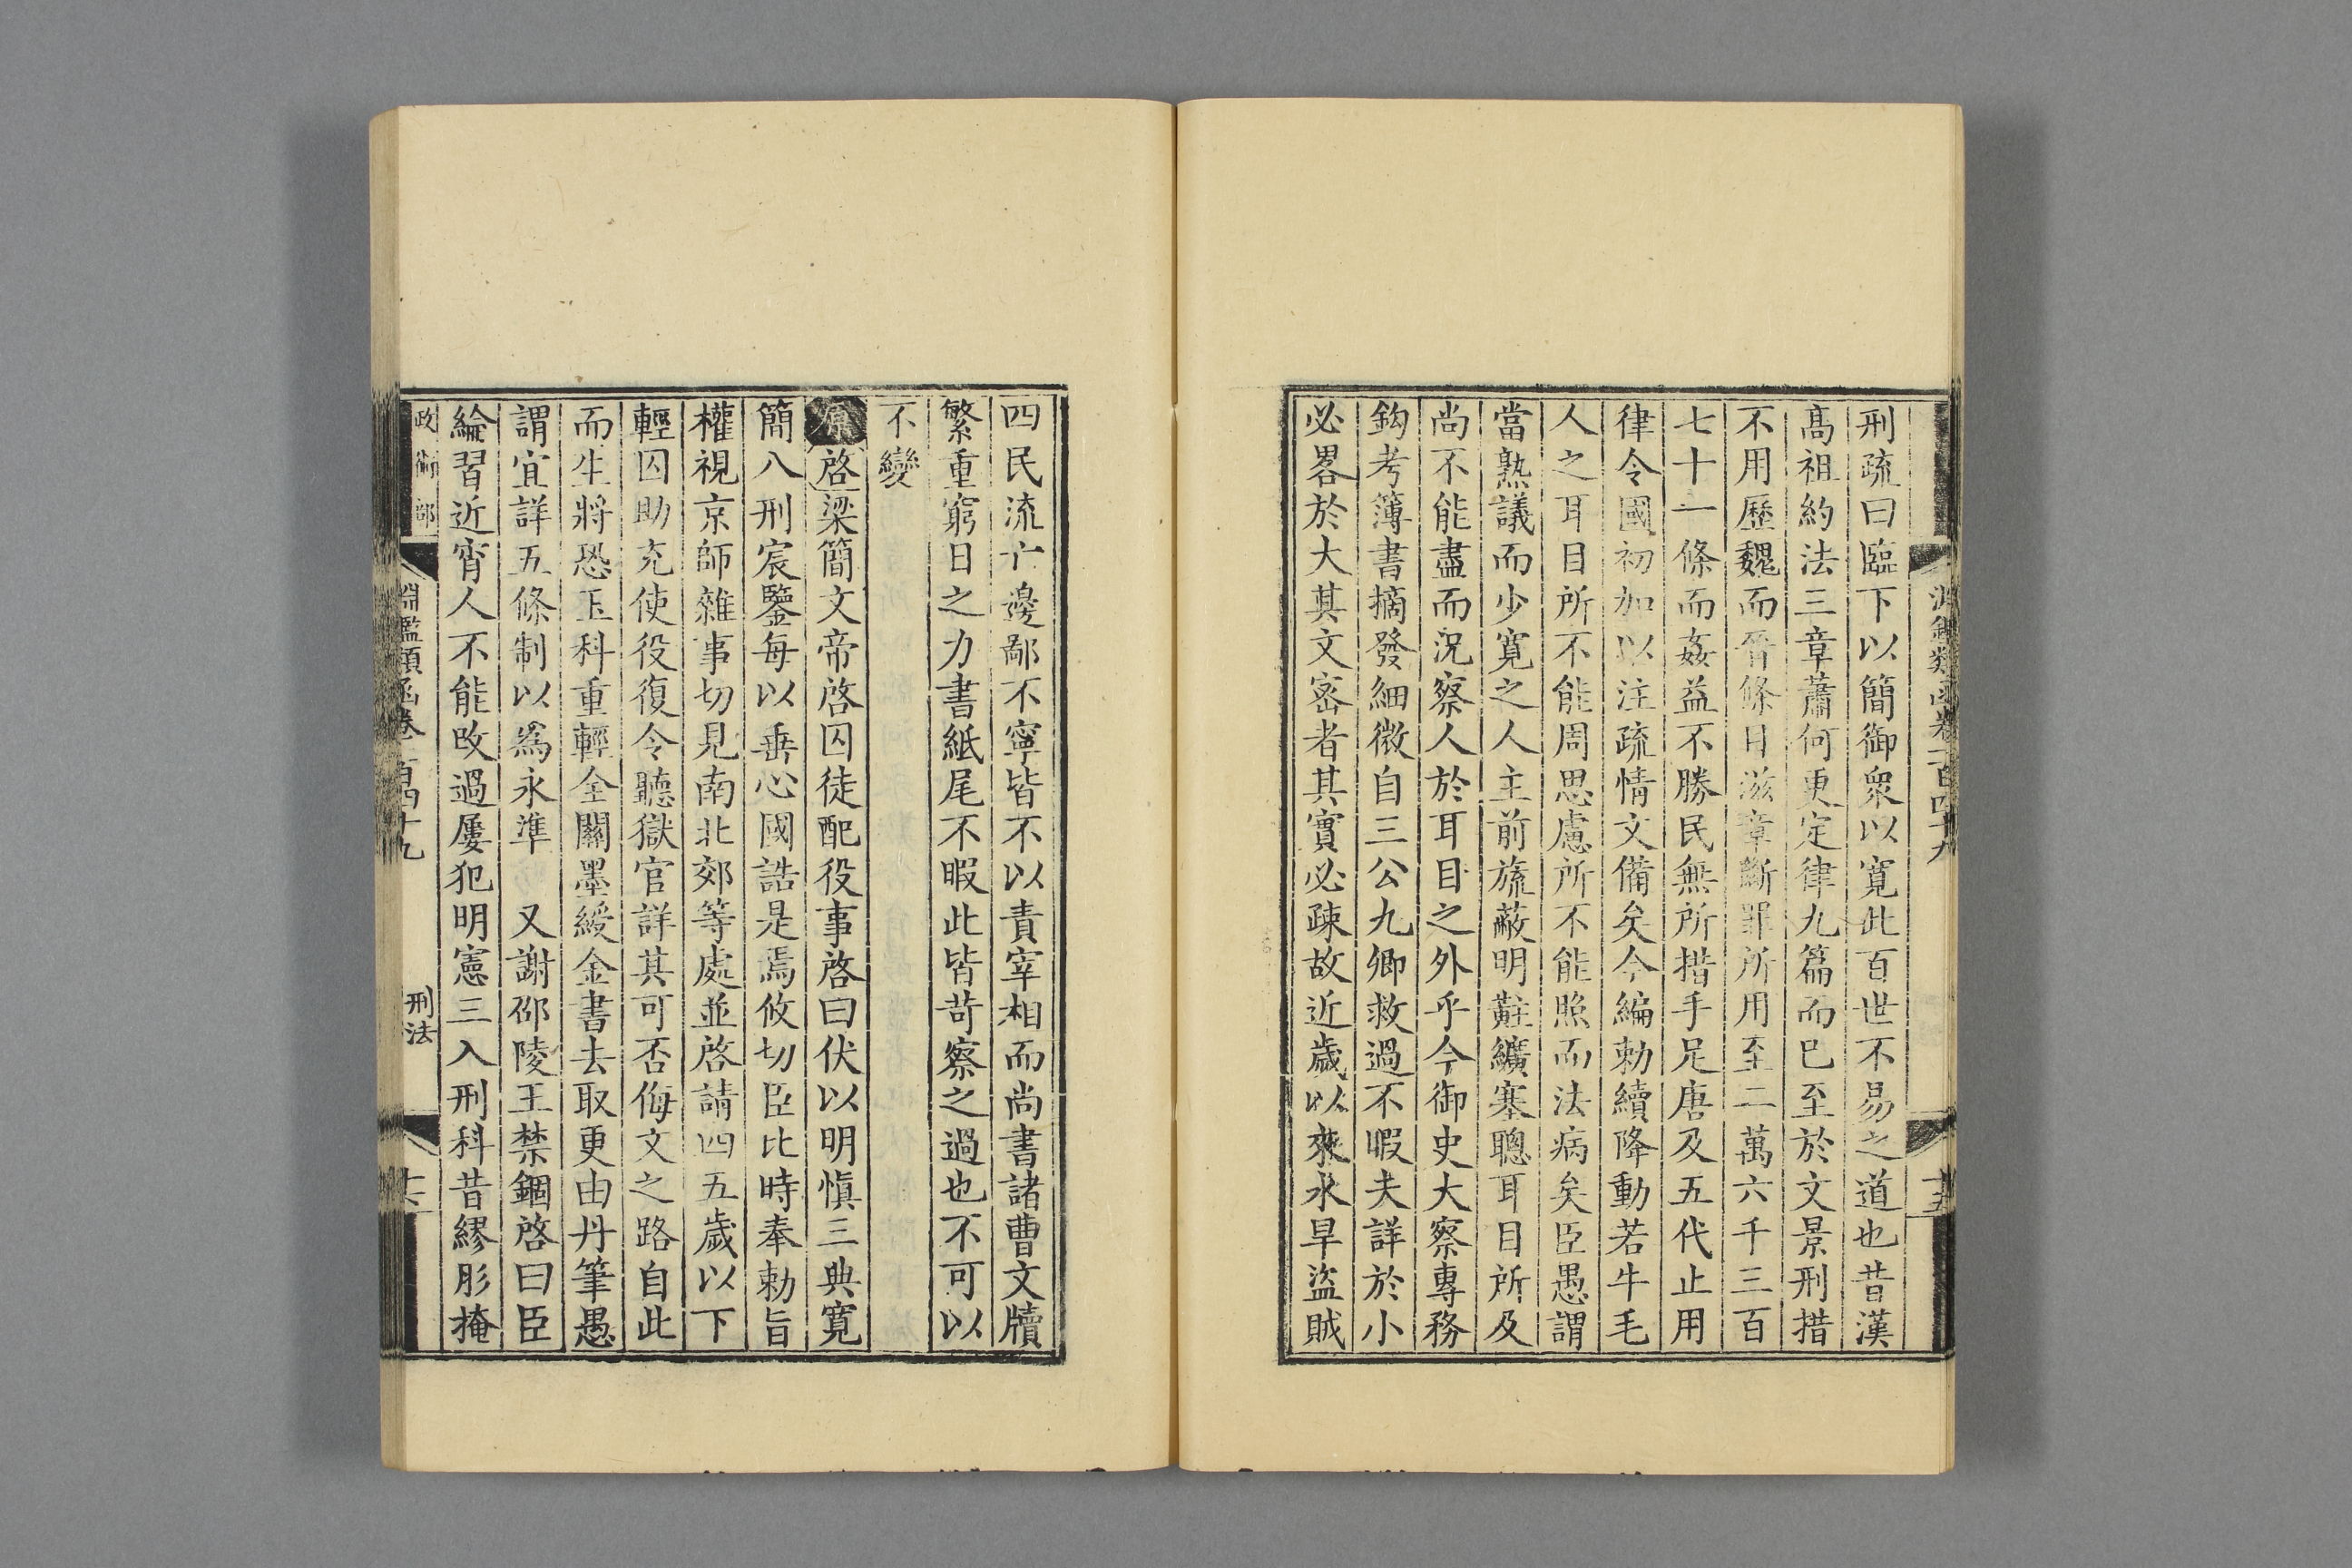 淵鑑類函卷一百四十九
十五
刑疏曰臨下以簡御衆以寬此百世不易之道也昔漢
髙祖約法三章蕭何更定律九篇而已至於文景刑措
不用歷魏而晉條目滋章斷罪所用至二萬六千三百
七十一條而姦益不勝民無所措手足唐及五代止用
律令國初加以注疏情文備矣今編勅續降動若牛毛
人之耳目所不能周思慮所不能照而法病矣臣愚謂
當熟議而少寬之人主前旒蔽明黈纊塞聰耳目所及
尚不能盡而況察人於耳目之外乎今御史大察專務
鈎考簿書摘發細微自三公九卿救過不暇夫詳於小
必畧於大其文宻者其實必疎故近歲以來水旱盜賊
四民流亡邊鄙不寧皆不以責宰相而尚書諸曹文牘
繁重窮日之力書紙尾不暇此皆苛察之過也不可以
不變
原啓梁簡文帝啓囚徒配役事啓曰伏以明愼三典寛
簡八刑宸鑒每以垂心國誥是焉攸切臣比時奉勅旨
權視京師雜事切見南北郊等處並啓請四五歲以下
輕囚助充使役復令聽獄官詳其可否侮文之路自此
而生將恐玉科重輕全關墨綬金書去取更由丹筆愚
謂宜詳五條制以爲永準 又謝邵陵王禁錮啓曰臣
綸習近宵人不能改過屢犯明憲三入刑科昔繆肜掩
政術部
淵鑑類函卷一百四十九
刑法